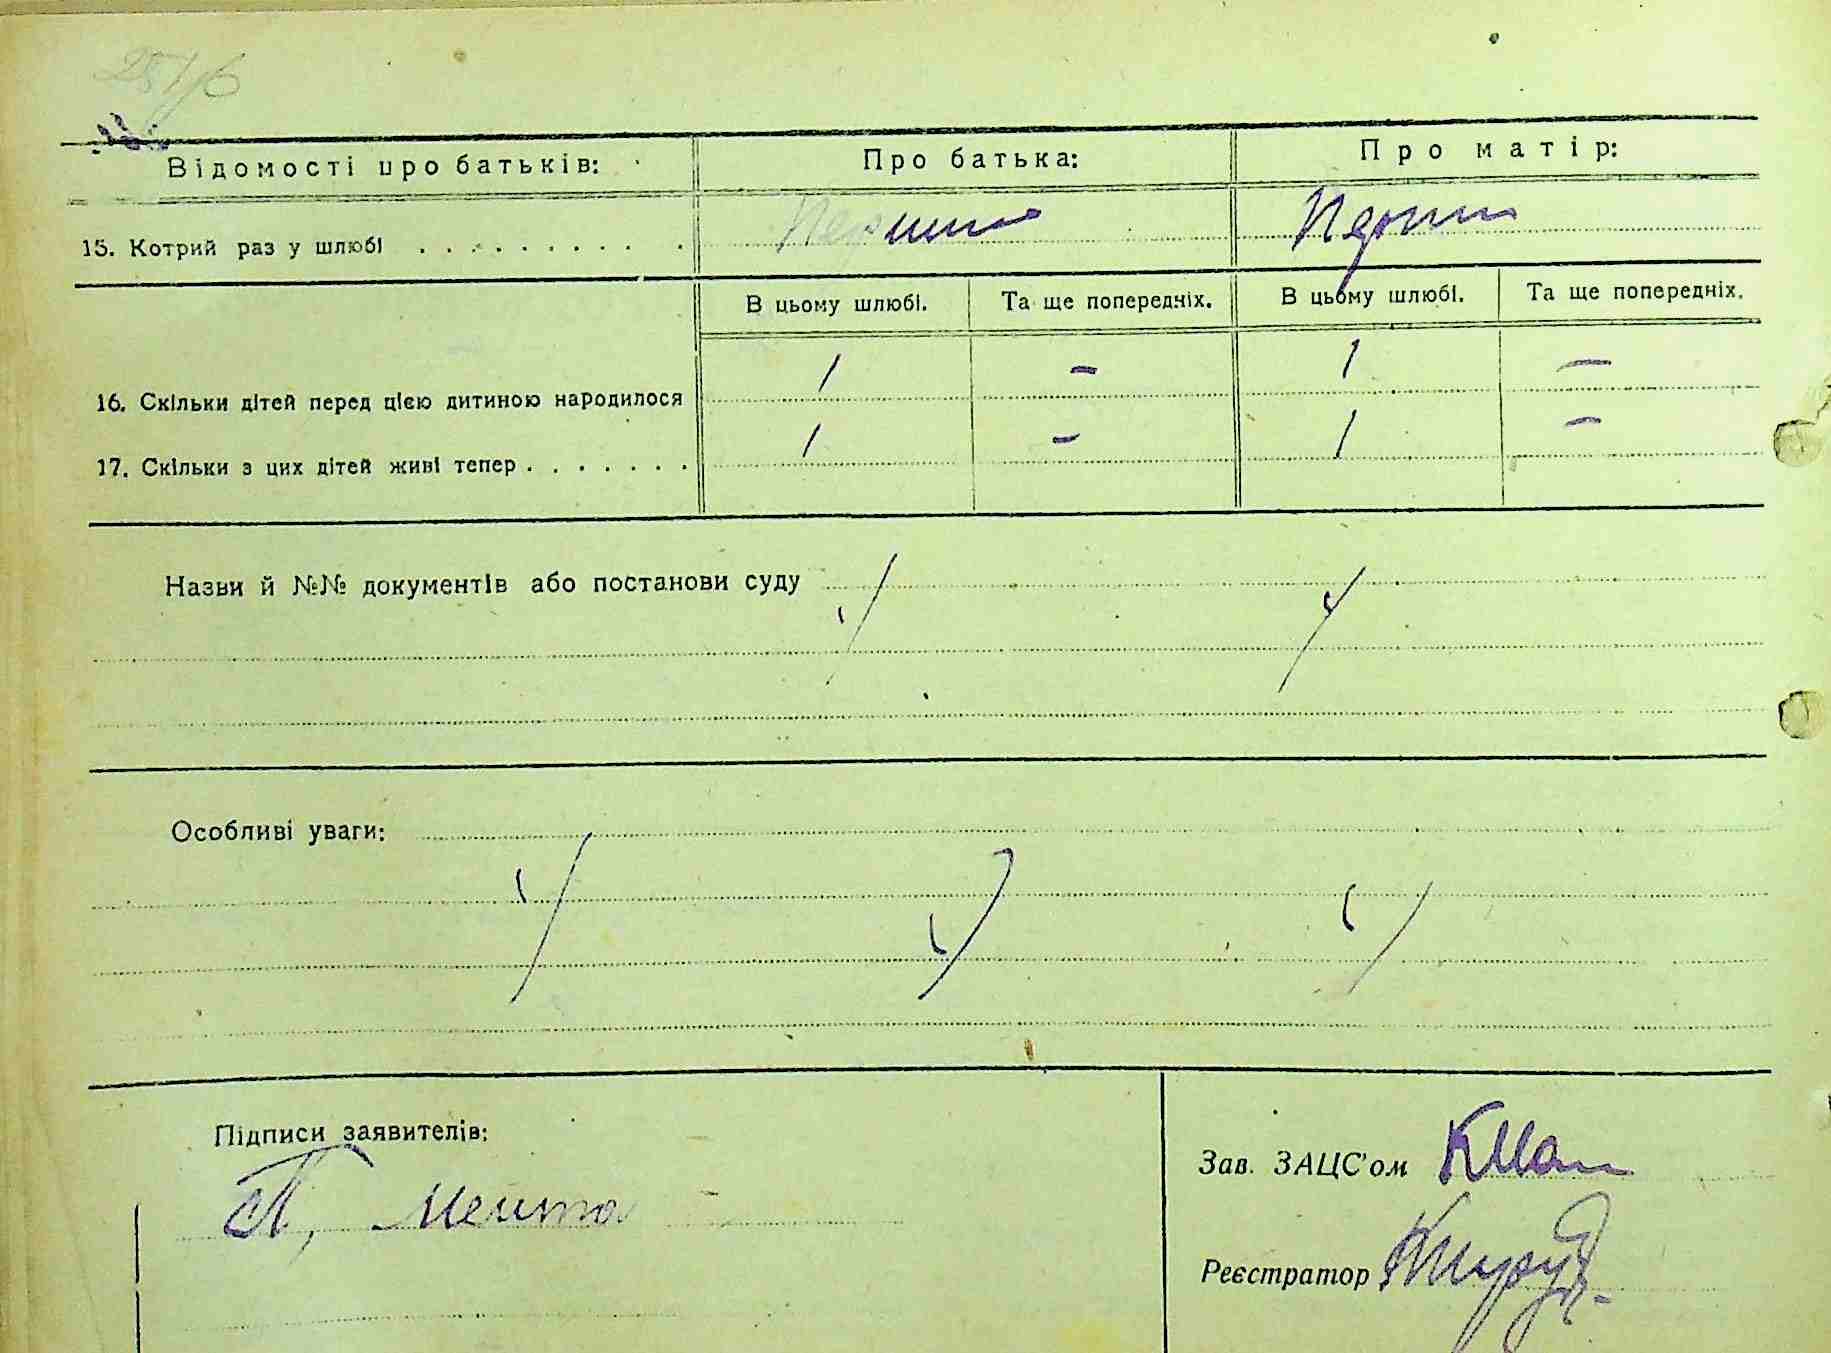 Відомості про батьків: Про батька: Про матір:
15. Котрий раз у шлюбі . . . . . . . . . . Перший Перший
В цьому шлюбі. Та ще попередніх. В цьому шлюбі. Та ще попередніх.
16. Скільки дітей перед цією дитиною народилося 1 – 1 –
17. Скільки з цих дітей живі тепер . . . . . . . 1 – 1 –
Назви й №№ документів або постанови суду
Особливі уваги:
Підписи заявителів:
Зав. ЗАЦС'ом
Реєстратор